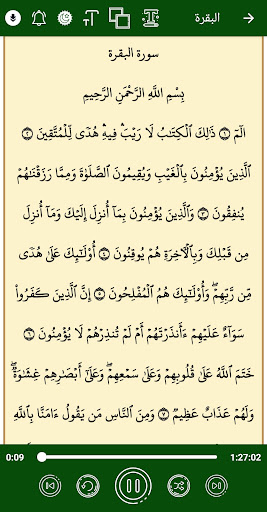 البقرة
سورة البقرة
بِسْمِ اللَّهِ الرَّحْمَٰنِ الرَّحِيمِ
الٓمٓ ١ ذَٰلِكَ الْكِتَٰبُ لَا رَيْبَ ۛ فِيهِ ۛ هُدًى لِّلْمُتَّقِينَ ٢
الَّذِينَ يُؤْمِنُونَ بِالْغَيْبِ وَيُقِيمُونَ الصَّلَوٰةَ وَمِمَّا رَزَقْنَٰهُمْ
يُنفِقُونَ ٣ وَالَّذِينَ يُؤْمِنُونَ بِمَآ أُنزِلَ إِلَيْكَ وَمَآ أُنزِلَ
مِن قَبْلِكَ وَبِالْأَخِرَةِ هُمْ يُوقِنُونَ ٤ أُوْلَٰٓئِكَ عَلَىٰ هُدًى
مِّن رَّبِّهِمْ ۖ وَأُوْلَٰٓئِكَ هُمُ الْمُفْلِحُونَ ٥ إِنَّ الَّذِينَ كَفَرُواْ
سَوَآءٌ عَلَيْهِمْ ءَأَنذَرْتَهُمْ أَمْ لَمْ تُنذِرْهُمْ لَا يُؤْمِنُونَ ٦
خَتَمَ اللَّهُ عَلَىٰ قُلُوبِهِمْ وَعَلَىٰ سَمْعِهِمْ ۖ وَعَلَىٰٓ أَبْصَٰرِهِمْ غِشَٰوَةٌ ۖ
وَلَهُمْ عَذَابٌ عَظِيمٌ ٧ وَمِنَ النَّاسِ مَن يَقُولُ ءَامَنَّا بِاللَّهِ
0:09
1:27:02